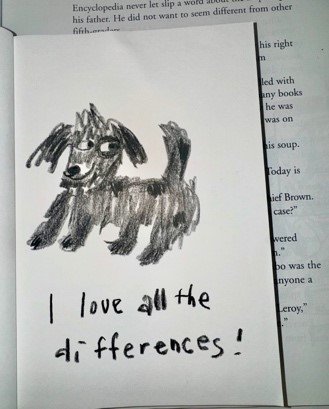 Encyclopedia never let slip a word about
his father. He did not want to seem different from other
fifth-graders
his right
led with
any books
he was
was on
his soup.
Today is
ief Brown.
case?"
wered
was the
nyone a
Leroy,"
I love all the
differences!